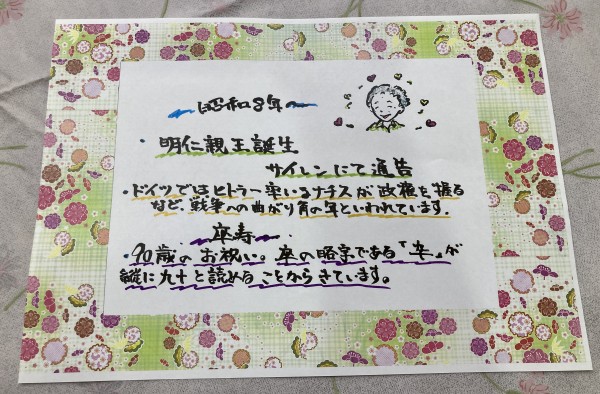 昭和8年の
・明仁親王誕生
サイレンにて通告
・ドイツではヒトラー率いるナチスが政権を握る
など、戦争への曲がり角の年といわれています.
卒寿
・90歳のお祝い。卒の略字である「卆」が
縦に九十と読めることからきています。